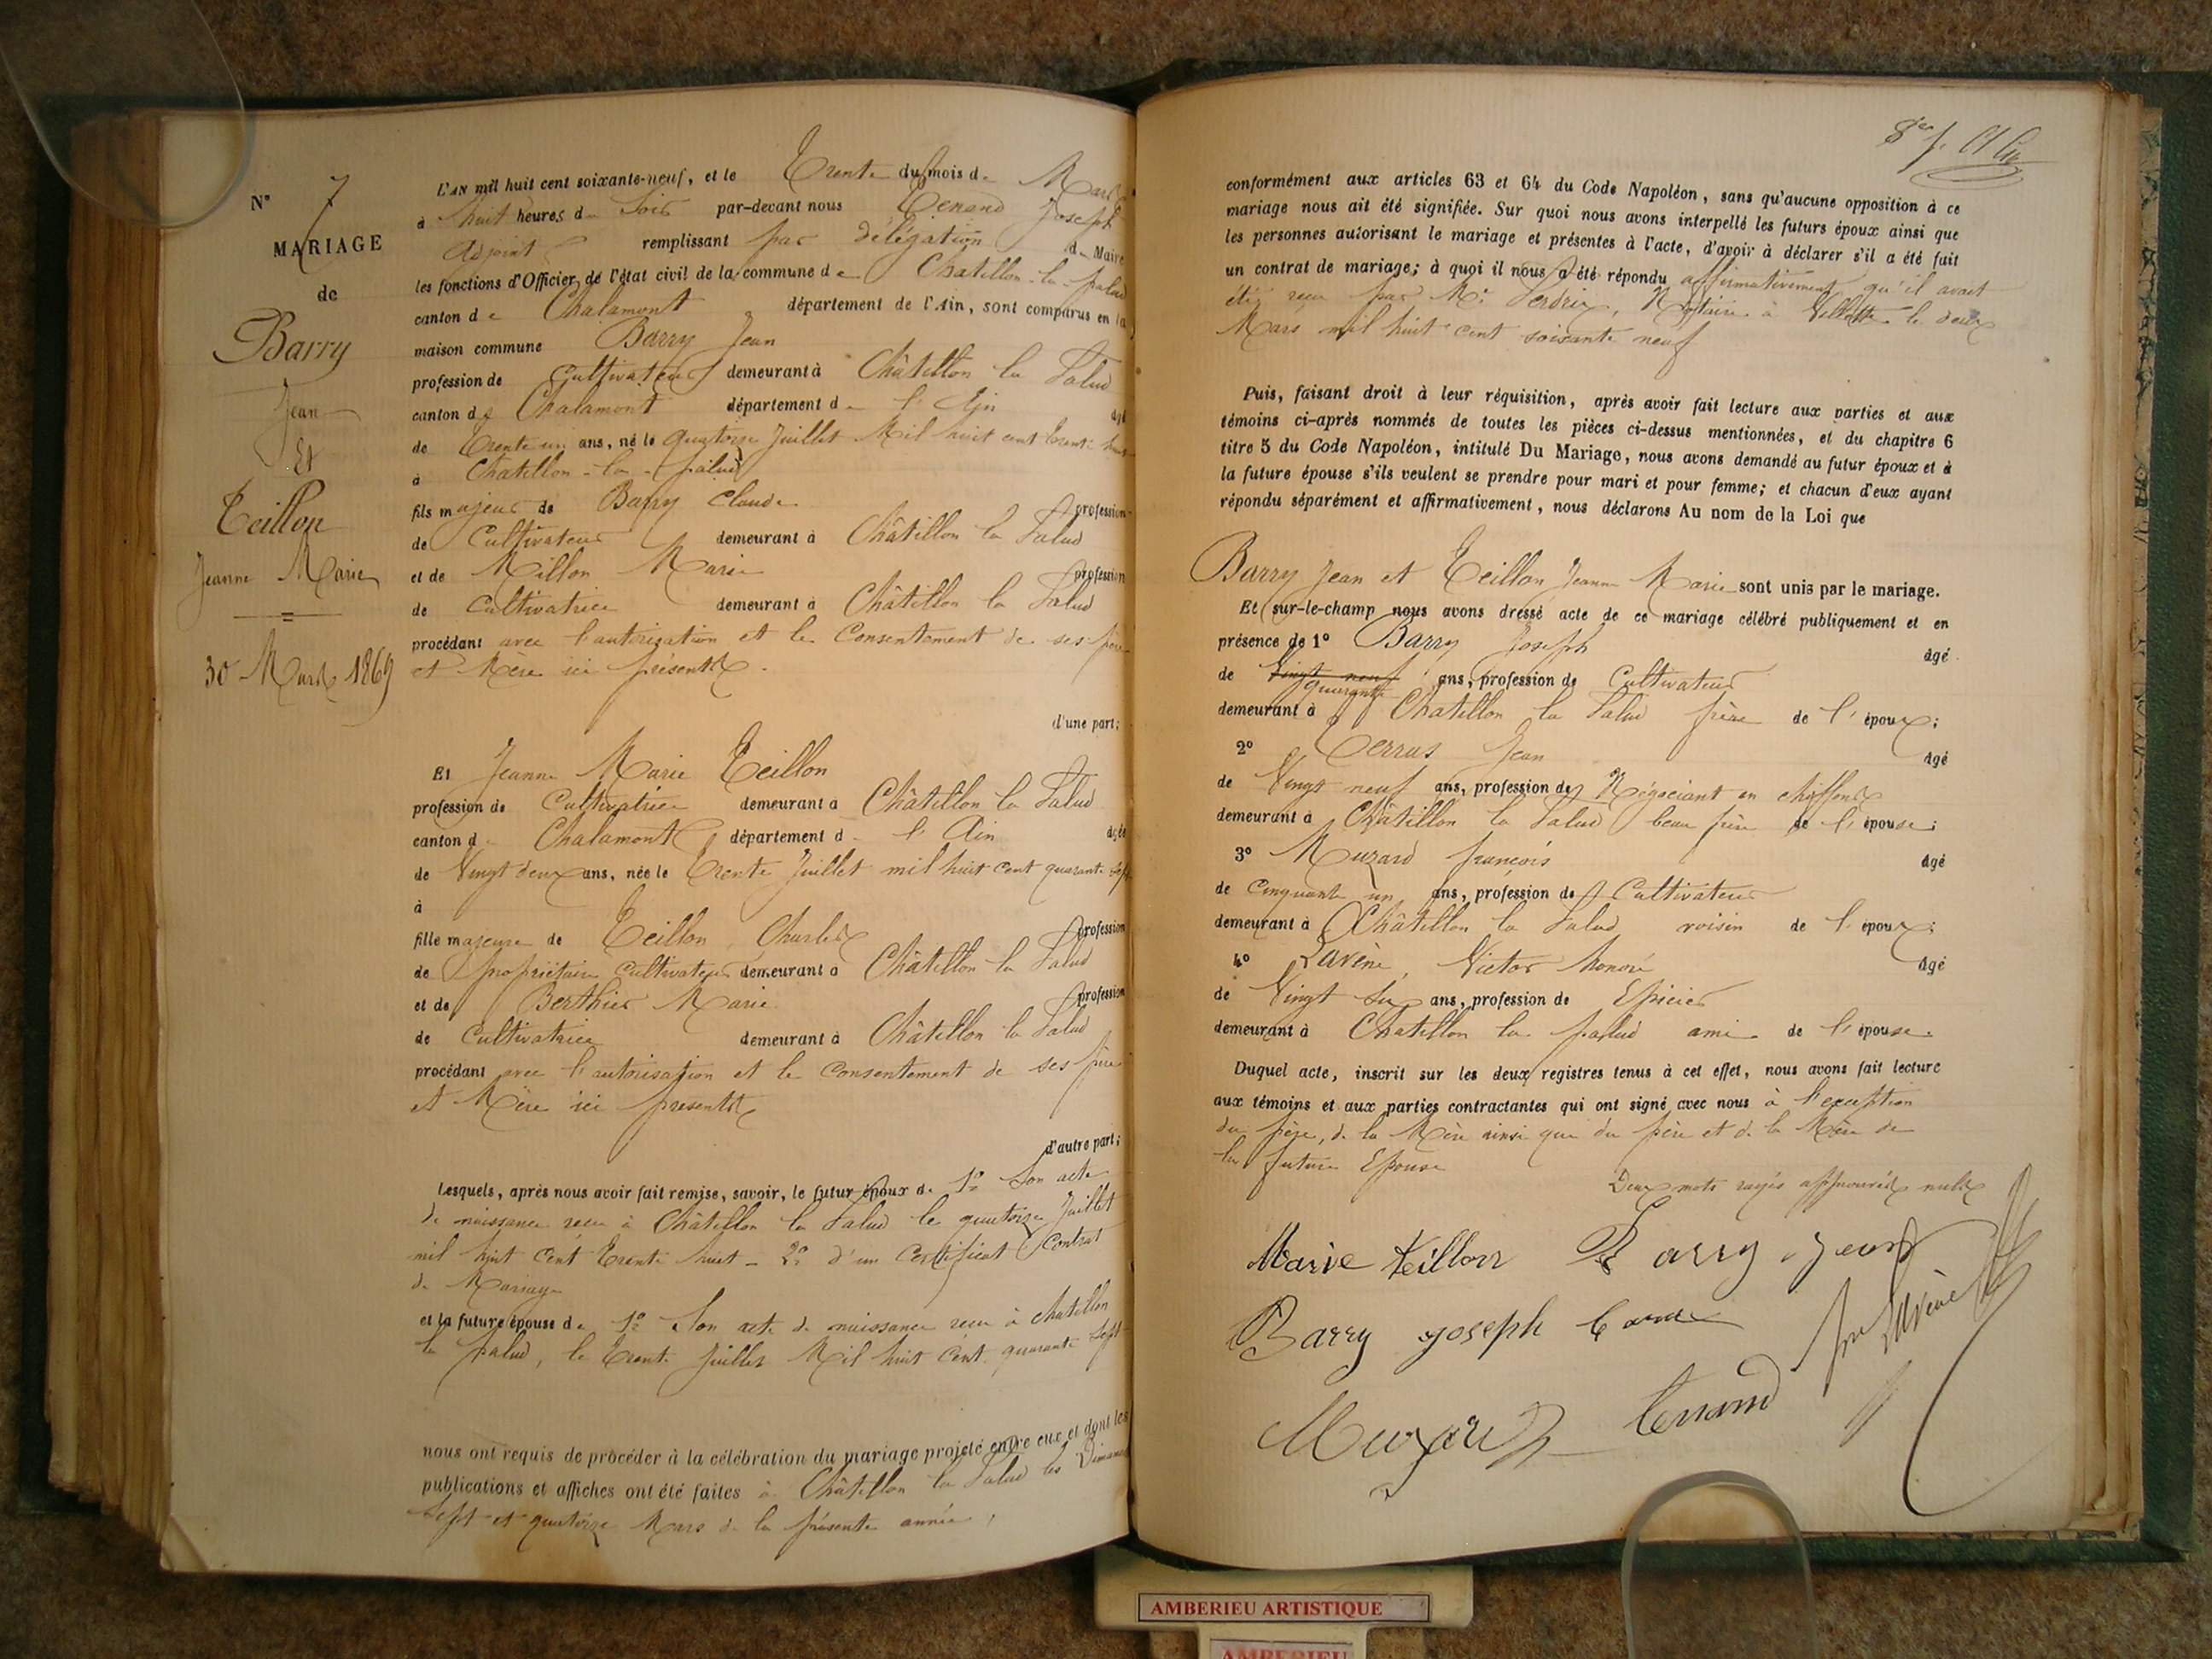 N° 7
MARIAGE
de
Barry
Jean
Et
Teillon
Jeanne Marie
30 Mars 1869
L'AN mil huit cent soixante-neuf, et le Trente du mois de Mars
à huit heures du Soir par-devant nous Tenand Joseph
Adjoint remplissant par délégation du Maire
les fonctions d'Officier de l'état civil de la commune de Chatillon-la-palud
canton de Chalamont département de l'Ain, sont comparus en la
maison commune Barry Jean
profession de Cultivateur demeurant à Châtillon la Palud
canton de Chalamont département de l'Ain âgé
de Trente un ans, né le quatorze Juillet Mil huit cent trente huit
à Chatillon-la-palud
fils majeur de Barry Claude profession
de Cultivateur demeurant à Châtillon la Palud
et de Millon Marie profession
de Cultivatrice demeurant à Châtillon la Palud
procédant avec l'autorisation et le Consentement de ses père
et Mère ici présents.
d'une part;
Et Jeanne Marie Teillon
profession de Cultivatrice demeurant à Châtillon la Palud
canton de Chalamont département de l'Ain âgée
de Vingt deux ans, née le Trente Juillet mil huit cent quarante sept
à
fille majeure de Teillon Charles profession
de propriétaire Cultivateur demeurant à Châtillon la Palud
et de Berthier Marie profession
de Cultivatrice demeurant à Châtillon la Palud
procédant avec l'autorisation et le Consentement de ses père
et Mère ici présents
d'autre part;
Lesquels, après nous avoir fait remise, savoir, le futur époux de 1° Son acte
de naissance reçu à Châtillon la Palud le quatorze Juillet
mil huit cent Trente huit - 2° d'un Certificat Contrat
de Mariage
et la future épouse de 1° Son acte de naissance reçu à chatillon
la palud, le Trente Juillet Mil huit Cent quarante sept
nous ont requis de procéder à la célébration du mariage projeté entre eux et dont les
publications et affiches ont été faites à Châtillon la Palud les Dimanches
Sept et quatorze Mars de la présente année,
conformément aux articles 63 et 64 du Code Napoléon, sans qu'aucune opposition à ce
mariage nous ait été signifiée. Sur quoi nous avons interpellé les futurs époux ainsi que
les personnes autorisant le mariage et présentes à l'acte, d'avoir à déclarer s'il a été fait
un contrat de mariage; à quoi il nous a été répondu affirmativement qu'il avait
été reçu par Me Perdrix, Notaire à Villette le deux
Mars mil huit cent soixante neuf
Puis, faisant droit à leur réquisition, après avoir fait lecture aux parties et aux
témoins ci-après nommés de toutes les pièces ci-dessus mentionnées, et du chapitre 6
titre 5 du Code Napoléon, intitulé Du Mariage, nous avons demandé au futur époux et à
la future épouse s'ils veulent se prendre pour mari et pour femme; et chacun d'eux ayant
répondu séparément et affirmativement, nous déclarons Au nom de la Loi que
Barry Jean et Teillon Jeanne Marie sont unis par le mariage.
Et sur-le-champ nous avons dressé acte de ce mariage célébré publiquement et en
présence de 1° Barry Joseph âgé
de Vingt neuf quarante ans, profession de Cultivateur
demeurant à Chatillon la Palud frère de l'époux;
2° Jean âgé
de Vingt neuf ans, profession de Négociant en chiffons
demeurant à Châtillon la Palud beau frère de l'épouse;
3° Muzard françois âgé
de Cinquante un ans, profession de Cultivateur
demeurant à Châtillon la Palud voisin de l'époux;
4° Lavène Victor honoré âgé
de Vingt Six ans, profession de Epicier
demeurant à Chatillon la palud ami de l'épouse.
Duquel acte, inscrit sur les deux registres tenus à cet effet, nous avons fait lecture
aux témoins et aux parties contractantes qui ont signé avec nous à l'exception
du père, de la Mère ainsi que du père et de la Mère de
la future Epouse
Deux mots rayés approuvés nuls
Marie teillon Barry jean
Barry joseph
Lavène
Muzard Tenand
AMBERIEU ARTISTIQUE
AMBERIEU